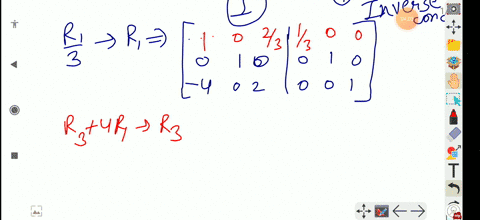 1
Inverse
R1/3 → R1 ⇒ [ 1 0 2/3 | 1/3 0 0
0 1 0 | 0 1 0
-4 0 2 | 0 0 1 ]
R3+4R1 → R3